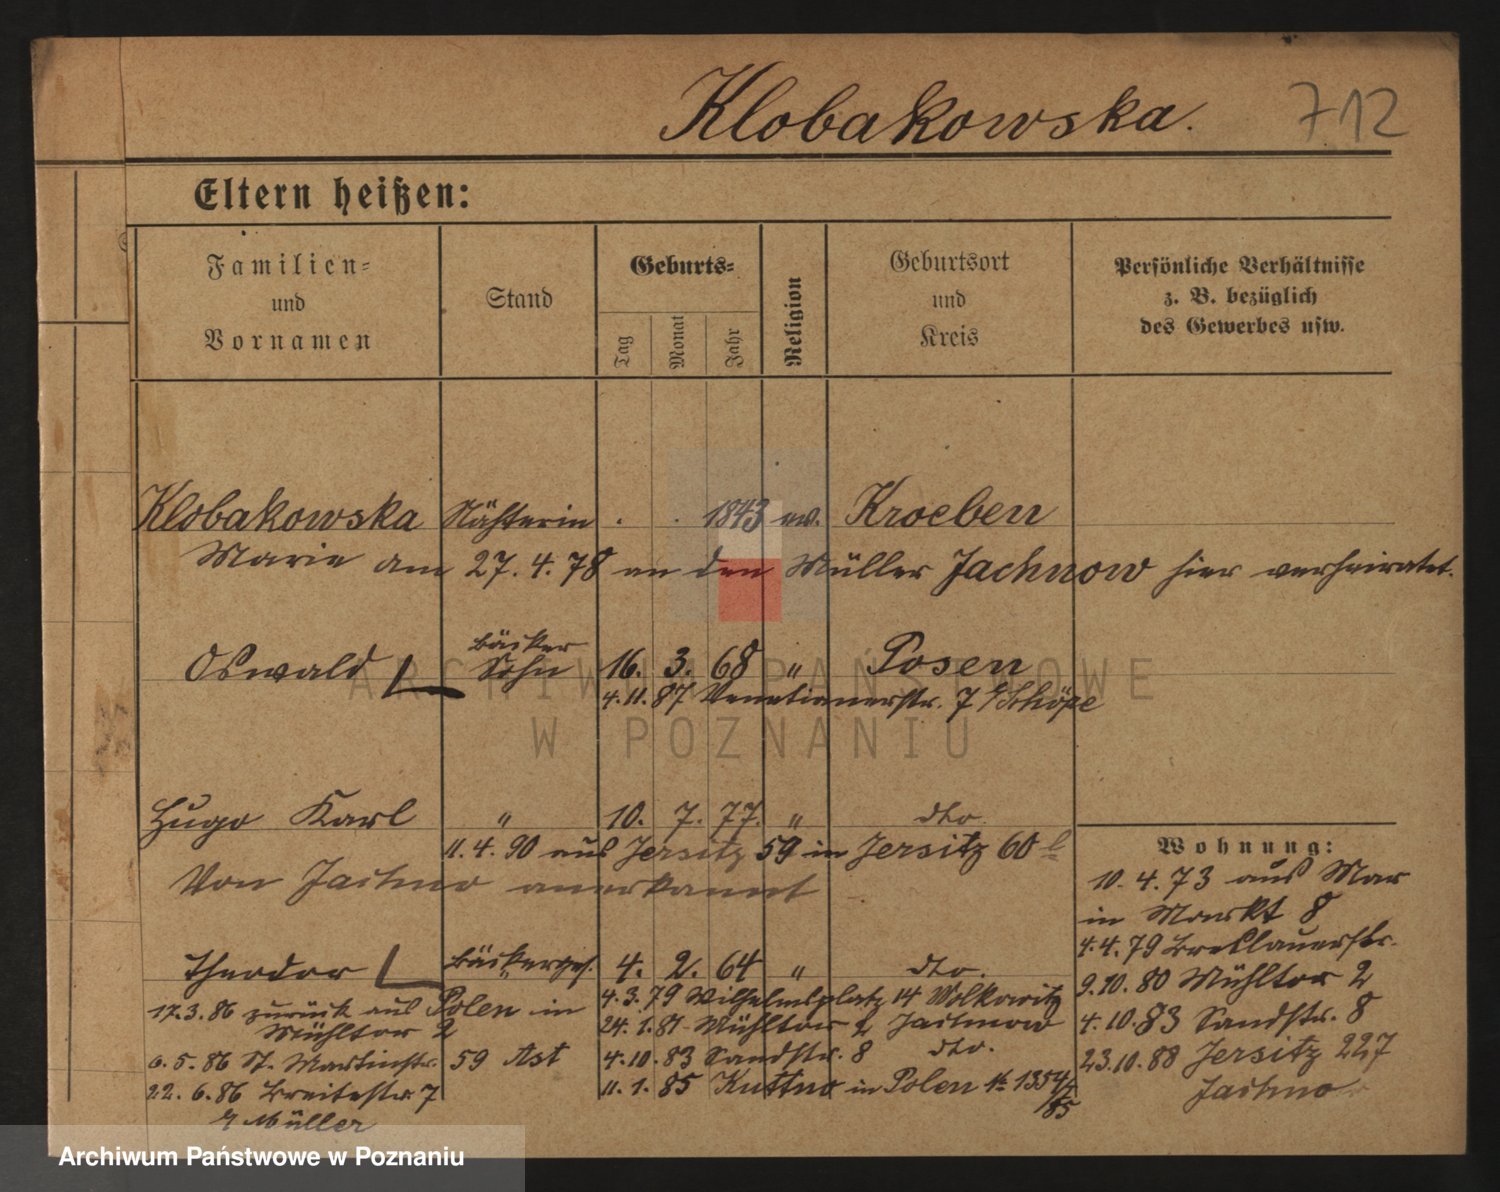 Klobakowska. 712
Eltern heißen:
Familien- und Vornamen
Stand
Geburts-
Tag Monat Jahr
Religion
Geburtsort und Kreis
Persönliche Verhältnisse
z. B. bezüglich
des Gewerbes usw.
Klobakowska Nähterin . . 1843 ev. Kroeben
Marie am 27.4.78 an den Müller Jachnow hier verheiratet.
Oswald Bäcker Sohn 16. 3. 68 " Posen
4.11.87 Venetianerstr. 7
Hugo Karl " 10. 7. 77. " dto.
11.4.90 aus Jersitz 59 in Jersitz 60
Von Jachno anerkannt
Theodor Bäckerges. 4. 2. 64 " dto.
4.3.79 Wilhelmsplatz 14 Wolkowitz
17.3.86 zurück aus Polen in
Mühltor 2
24.1.81 Mühltor 2 Jachnow
6.5.86 St. Martinstr. 59 Ast
4.10.83 Sandstr. 8 dto.
22.6.86 Breitestr. 7
Müller
11.1.85 Kuttno in Polen
Wohnung:
10.4.73 aus Mar
in Markt 8
4.4.79 Breslauerstr.
9.10.80 Mühltor 2
4.10.83 Sandstr. 8
23.10.88 Jersitz 227
Jachno
ARCHIWUM PAŃSTWOWE
W POZNANIU
Archiwum Państwowe w Poznaniu